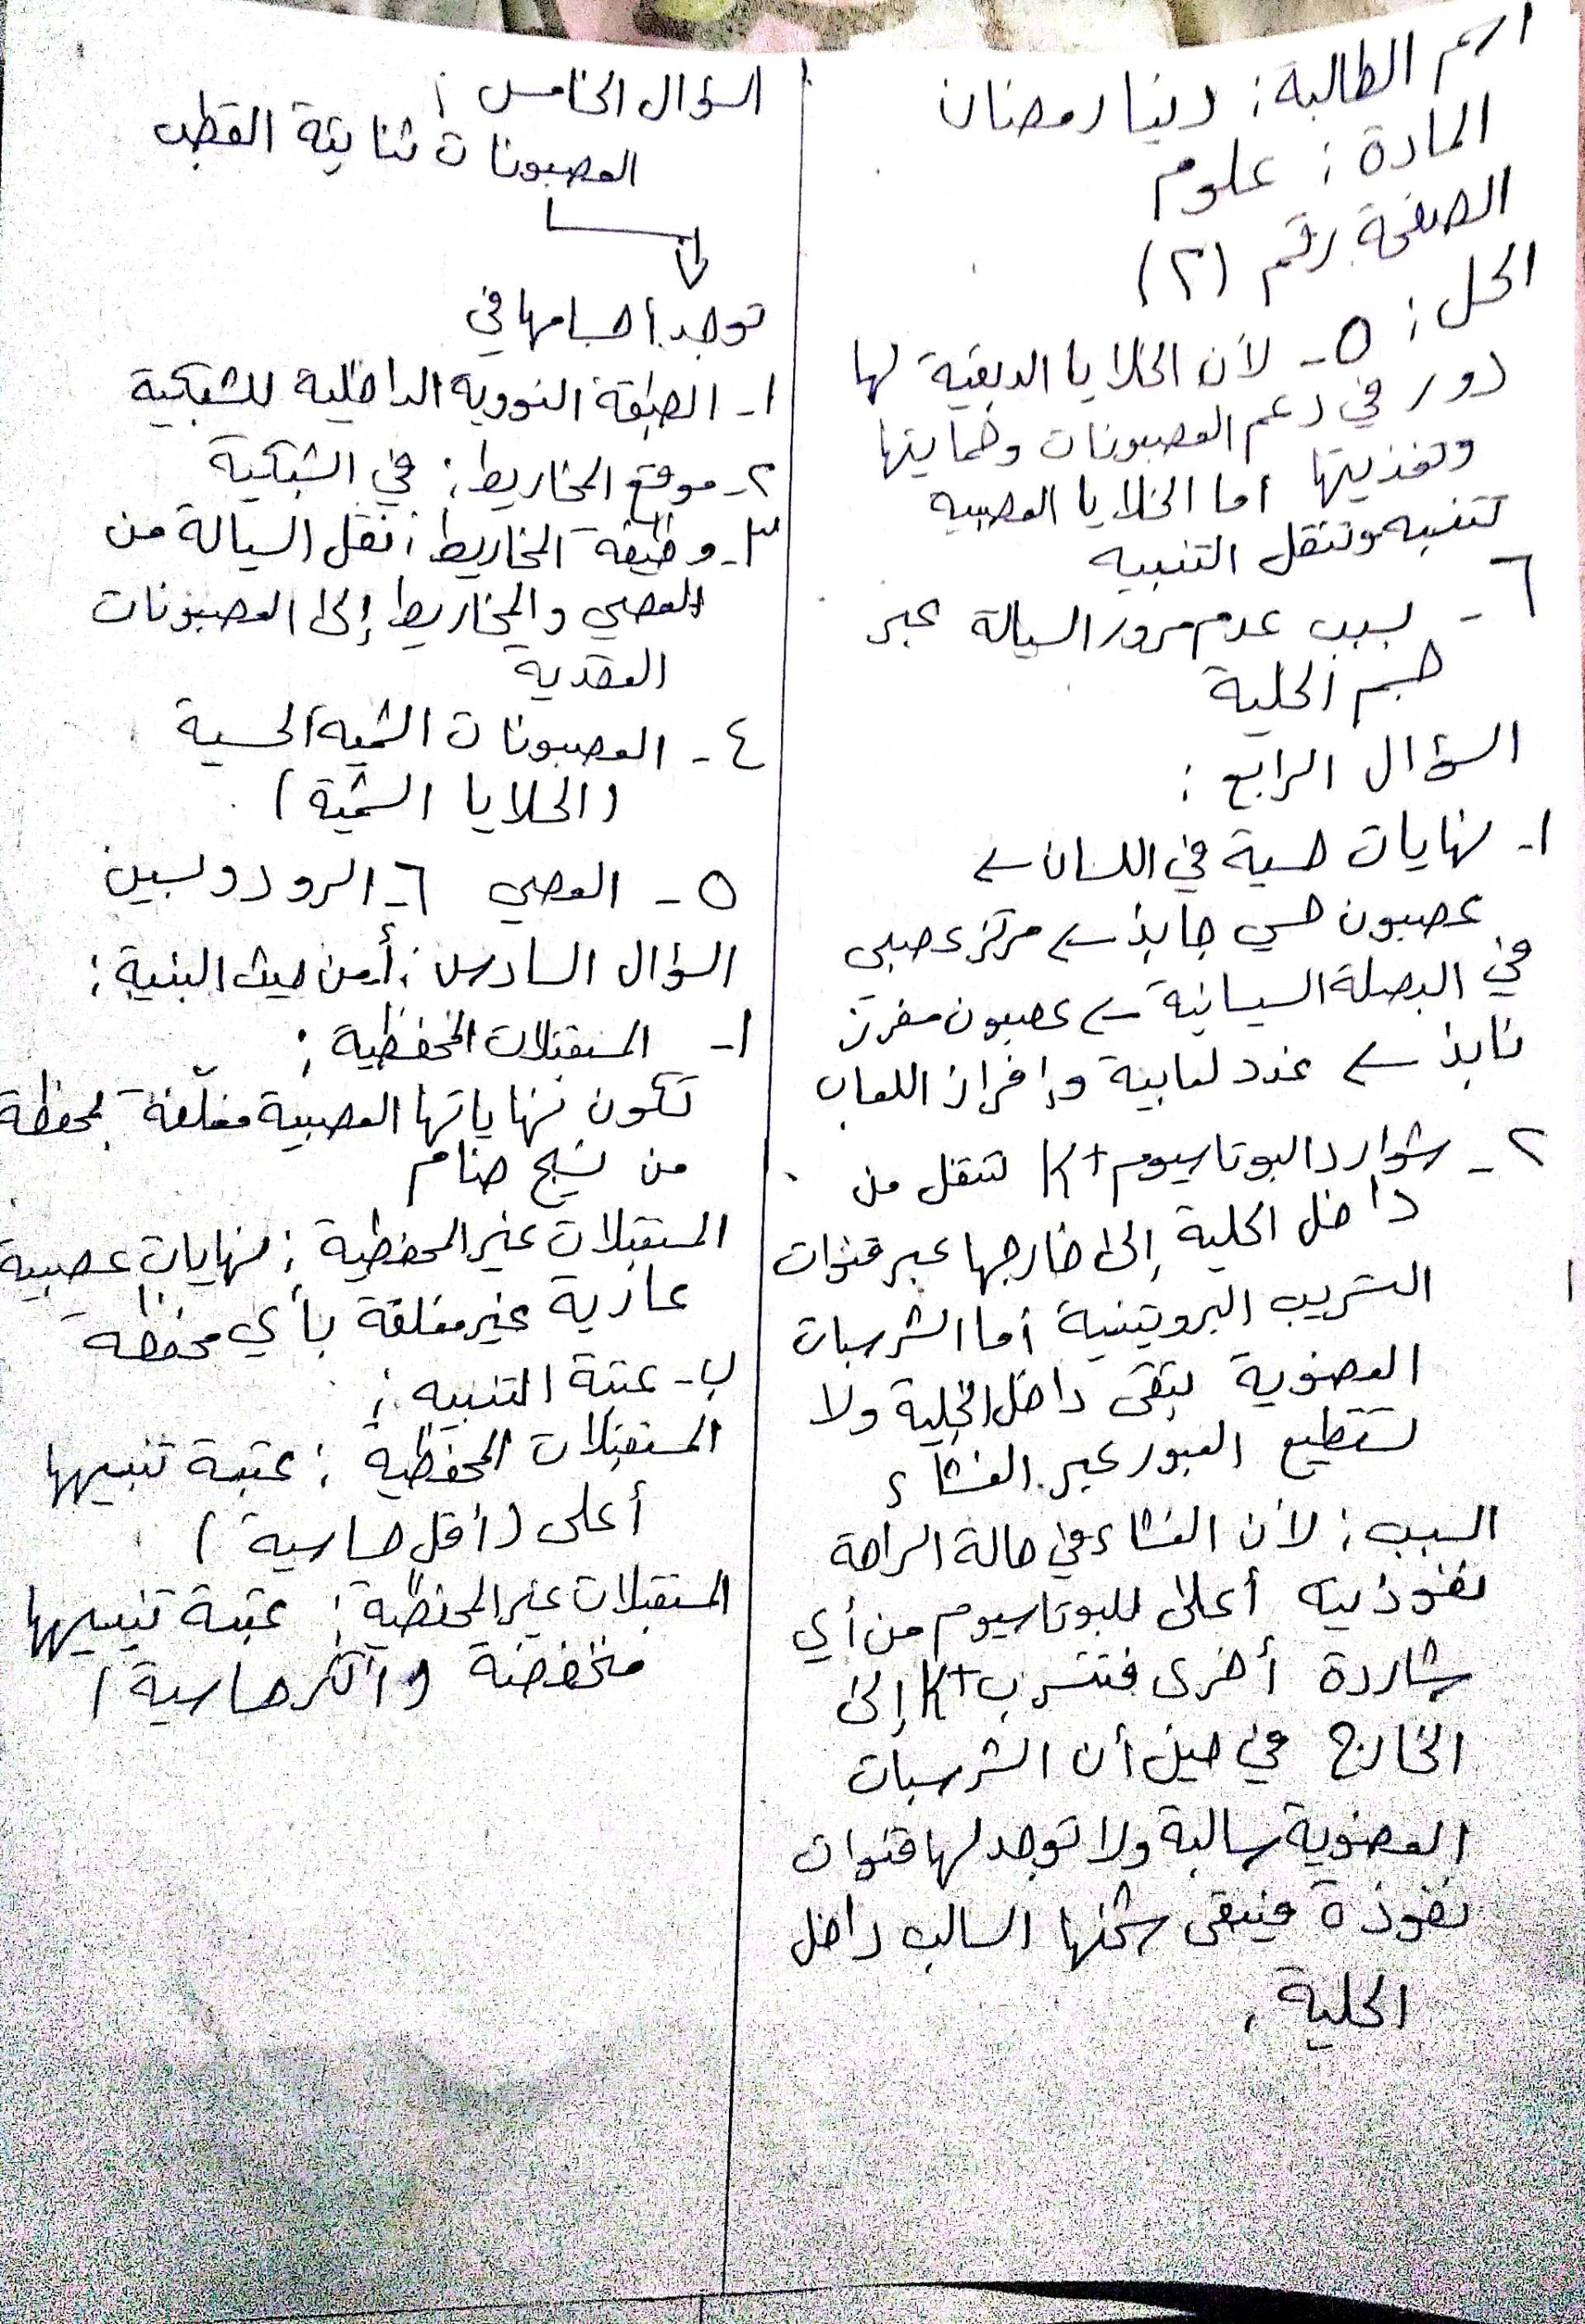 اسم الطالبة: دينا رمضان
المادة: علوم
الصفحة رقم (٢)
الحل:
٥- لأن الخلايا الدبقية لها
دور في دعم العصبونات وحمايتها
وتغذيتها اما الخلايا العصبية
تتنبه وتنقل التنبيه
٦- بسبب عدم مرور السيالة عبر
جسم الخلية
السؤال الرابع:
١- نهايات حسية في اللسان ←
عصبون حسي جابذ ← مركز عصبي
في البصلة السيسائية ← عصبون مفرز
نابذ ← غدد لعابية وإفراز اللعاب
٢- شوارد البوتاسيوم K+ تنتقل من
داخل الخلية إلى خارجها عبر قنوات
التسريب البروتينية أما الشرسبات
العضوية تبقى داخل الخلية ولا
تستطيع العبور عبر الغشاء
السبب: لأن الغشاء في حالة الراحة
نفوذيته أعلى للبوتاسيوم من أي
شاردة أخرى فتتسرب K+ إلى
الخارج في حين أن الشرسبات
العضوية سالبة ولا توجد لها قنوات
نفوذة فيبقى شحنها السالب داخل
الخلية.
السؤال الخامس:
العصبونات ثنائية القطب
توجد أجسامها في
١- الطبقة النووية الداخلية للشبكية
٢- موقع المخاريط: في الشبكية
٣- وظيفة المخاريط: نقل السيالة من
العصي والمخاريط إلى العصبونات
العقدية
٤- العصبونات الشمية الحسية
(الخلايا الشمية)
٥- العصي ٦- الرودوبسين
السؤال السادس: أ- من حيث البنية:
١- المستقبلات المحفظية:
تكون نهاياتها العصبية مغلفة بمحفظة
من نسيج ضام
المستقبلات غير المحفظية: نهايات عصبية
عارية غير مغلفة بأي محفظة
ب- عتبة التنبيه:
المستقبلات المحفظية: عتبة تنبيهها
أعلى (أقل حساسية)
المستقبلات غير المحفظية: عتبة تنبيهها
منخفضة (أكثر حساسية)